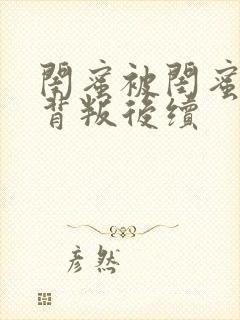 閨蜜被閨蜜
背叛後續
彥然